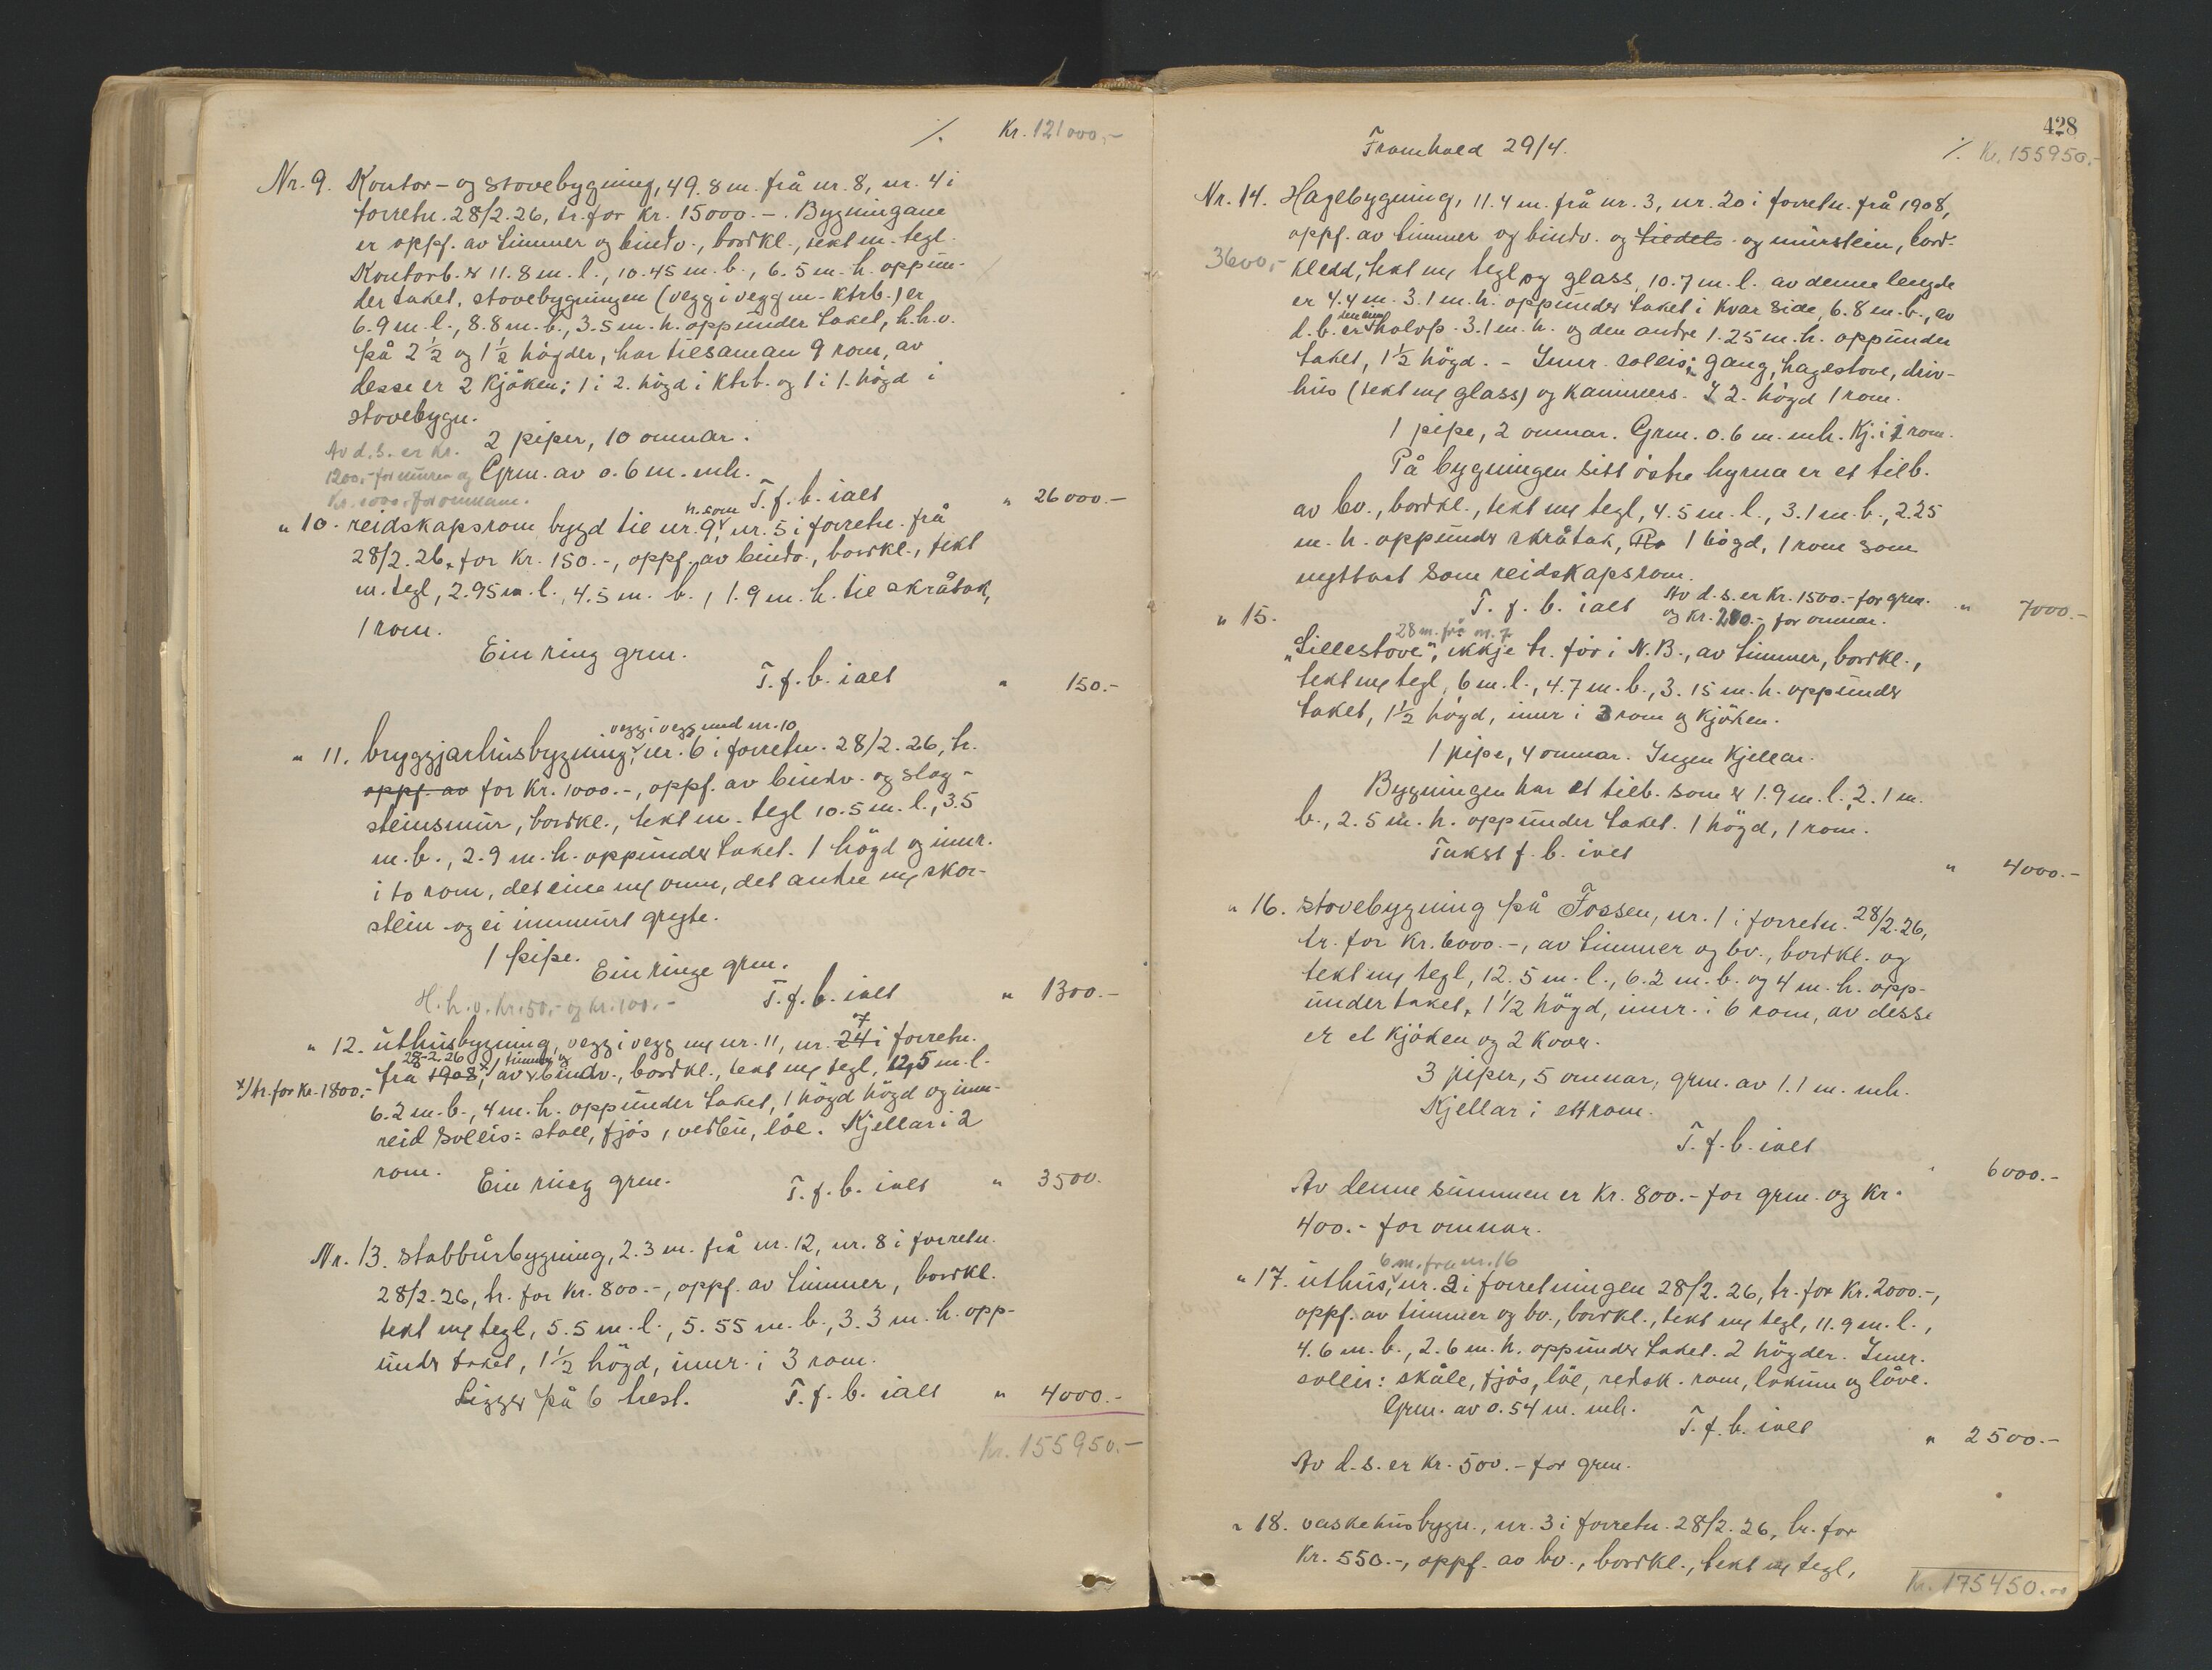 ٪ Kr. 121000,-
Nr. 9. Kontor- og stovebygning, 49.8 m. frå nr. 8, nr. 4 i
forretn. 28/2.26, tr. for kr. 15000.-. Bygningane
er oppf. av timmer og bindv., bordkl., tekt m. tegl.
Kontorb. er 11.8 m. l., 10.45 m. b., 6.5 m. h. oppun-
der taket, stovebygningen (vegg i vegg m. ktrb.) er
6.9 m. l., 8.8 m. b., 3.5 m. h. oppunder taket, h.h.v.
på 2 ½ og 1 ½ høgder, har tilsaman 9 rom, av
desse er 2 kjöken; 1 i 2. högd i ktrb. og 1 i 1. högd i
stovebygn.
2 piper, 10 omnar.
Av d. s. er kr.
1200,- for muren og Grm. av 0.6 m. mh.
kr. 1000,- for omnane.
T. f. b. ialt " 26000.-
h. som
" 10. reidskapsrom bygd til nr. 9, nr. 5 i forretn. frå
28/2.26, for kr. 150.-, oppf. av bindv., bordkl., tekt
m. tegl, 2.95 m. l., 4.5 m. b., 1.9 m. h. til skråtak,
1 rom.
Ein ring grm.
T. f. b. ialt " 150.-
vegg i vegg med nr. 10
" 11. bryggjarhusbygning, nr. 6 i forretn. 28/2.26, tr.
oppf. av for kr. 1000.-, oppf. av bindv. og slag-
steinsmur, bordkl., tekt m. tegl 10.5 m. l., 3.5
m. b., 2.9 m. h. oppunder taket. 1 högd og innr.
i to rom, det eine m/ omn, det andre m/ skor-
stein og ei innmurt gryte.
1 pipe.
Ein ringe grm.
H. h. v. kr. 50,- og kr. 100.-
T. f. b. ialt " 1300.-
7
" 12. uthusbygning, vegg i vegg m/ nr. 11, nr. 24 i forretn.
28-2.26 x) timmer og
x) tr. for kr. 1800.- frå 1908, av bindv., bordkl., tekt m/ tegl, 12,5 m. l.
6.2 m. b., 4 m. h. oppunder taket, 1 högd högd og inn-
reid soleis: stall, fjös, vedbu, löe. Kjellar i 2
rom. Ein ring grm.
T. f. b. ialt " 3500.
Nr. 13. stabbursbygning, 2.3 m. frå nr. 12, nr. 8 i forretn.
28/2.26, tr. for kr. 800.-, oppf. av timmer, bordkl.
tekt m/ tegl, 5.5 m. l., 5.55 m. b., 3.3 m. h. opp-
under taket, 1 ½ högd, innr. i 3 rom.
Ligger på 6 trest. T. f. b. ialt " 4000.-
Kr. 155950.-
428
Framhald 29/4.
٪ Kr. 155950.-
Nr. 14. Hagebygning, 11.4 m. frå nr. 3, nr. 20 i forretn. frå 1908,
oppf. av timmer og bindv. og tildels og murstein, bord-
3600,- kledd, tekt m/ tegl og glass, 10.7 m. l. av denne lengde
er 4.4 m. 3.1 m. h. oppunder taket i kvar side, 6.8 m. b., av
d. b. er den eine halvp. 3.1 m. h. og den andre 1.25 m. h. oppunder
taket, 1 ½ högd. - Innr. soleis: gang, hagestove, driv-
hus (tekt m/ glass) og kammers. I 2. högd 1 rom.
1 pipe, 2 omnar. Grm. 0.6 m. mh. Kj. i 1 rom.
På bygningen sitt östre hyrna er et tilb.
av bv., bordkl., tekt m/ tegl, 4.5 m. l., 3.1 m. b., 2.25
m. h. oppunder skråtak, 1 högd, 1 rom som
nyttast som reidskapsrom.
T. f. b. ialt Av d. s. er kr. 1500.- for grm. " 7000.-
og kr. 200.- for omnar.
" 15.
28 m. frå nr. 7
"Lillestove", ikkje tr. för i N. B., av timmer, bordkl.,
tekt m/ tegl, 6 m. l., 4.7 m. b., 3.15 m. h. oppunder
taket, 1 ½ högd, innr i 3 rom og kjöken.
1 pipe, 4 omnar. Ingen kjellar.
Bygningen har et tilb. som er 1.9 m. l., 2.1 m.
b., 2.5 m. h. oppunder taket. 1 högd, 1 rom.
Takst f. b. ialt " 4000.-
" 16. stovebygning på Fossen, nr. 1 i forretn. 28/2.26,
tr. for kr. 6000.-, av timmer og bv., bordkl. og
tekt m/ tegl, 12.5 m. l., 6.2 m. b. og 4 m. h. opp-
under taket, 1 1/2 högd, innr. i 6 rom, av desse
er et kjöken og 2 kover.
3 piper, 5 omnar, grm. av 1.1 m. mh.
Kjellar i ett rom.
T. f. b. ialt 6000.-
Av denne summen er kr. 800.- for grm. og kr.
400.- for omnar.
6 m. fra nr. 16
" 17. uthus, nr. 2 i forretningen 28/2.26, tr. for kr. 2000.-,
oppf. av timmer og bv., bordkl., tekt m/ tegl, 11.9 m. l.,
4.6 m. b., 2.6 m. h. oppunder taket. 2 högder. Innr.
soleis: skåle, fjös, löe, redsk. rom, lokum og låve.
Grm. av 0.54 m. mh.
T. f. b. ialt " 2500.-
Av d. s. er kr. 500.- for grm.
" 18. vaskehusbygn., nr. 3 i forretn. 28/2.26, tr. for
kr. 550.-, oppf. av bv., bordkl., tekt m/ tegl,
Kr. 175450.00